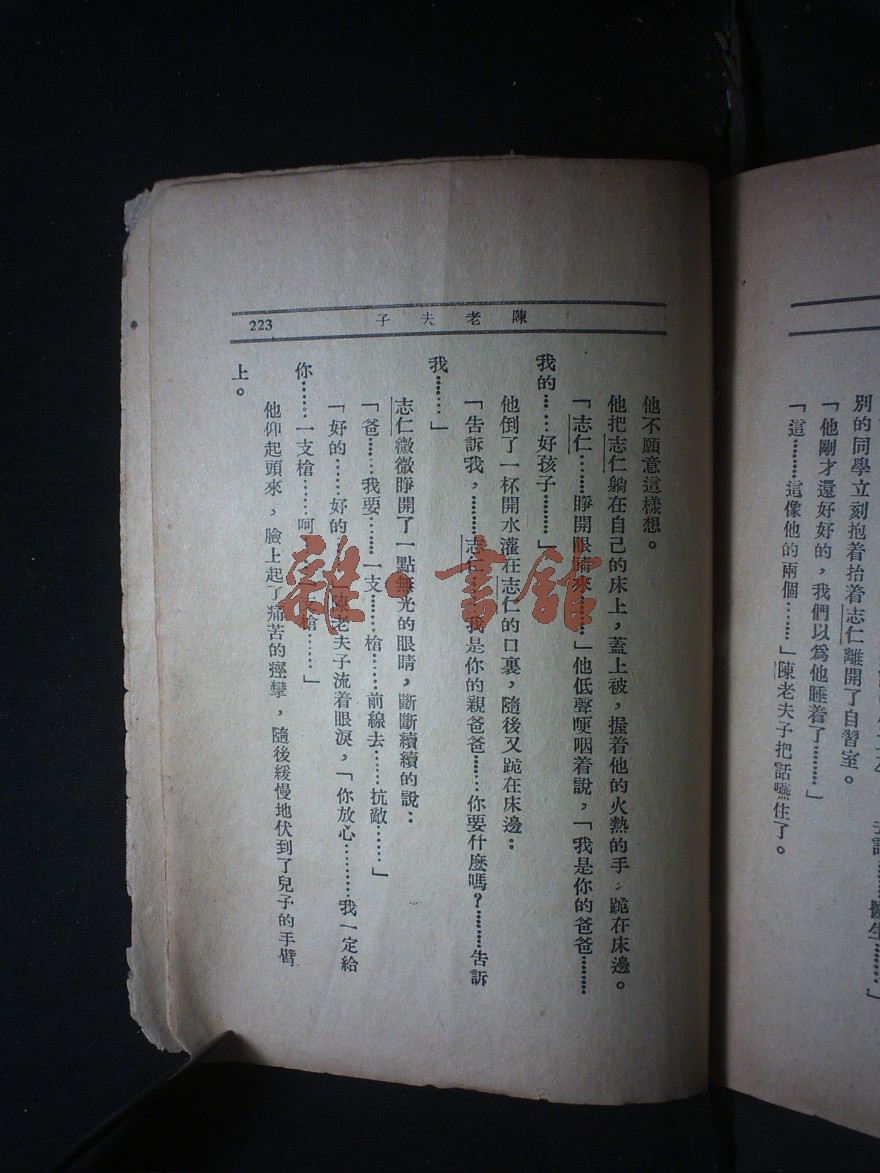 別的同學立刻抱着抬着志仁離開了自習室。
「他剛才還好好的，我們以爲他睡着了………」
「這………這像他的兩個……」陳老夫子把話嚥住了。
陳老夫子
223
他不願意這樣想。
他把志仁躺在自己的床上，蓋上被，握着他的火熱的手，跪在床邊。
「志仁………睜開眼睛來………」他低聲哽咽着說，「我是你的爸爸………
我的……好孩子………」
他倒了一杯開水灌在志仁的口裏，隨後又跪在床邊：
「告訴我，………志仁……我是你的親爸爸………你要什麼嗎？………告訴
我………」
志仁微微睜開了一點無光的眼睛，斷斷續續的說：
「爸………我要………一支……槍……前線去……抗敵………」
「好的……好的……」陳老夫子流着眼淚，「你放心………我一定給
你………一支槍……呵……一支槍……」
他仰起頭來，臉上起了痛苦的痙攣，隨後緩慢地伏到了兒子的手臂
上。
雜·書館